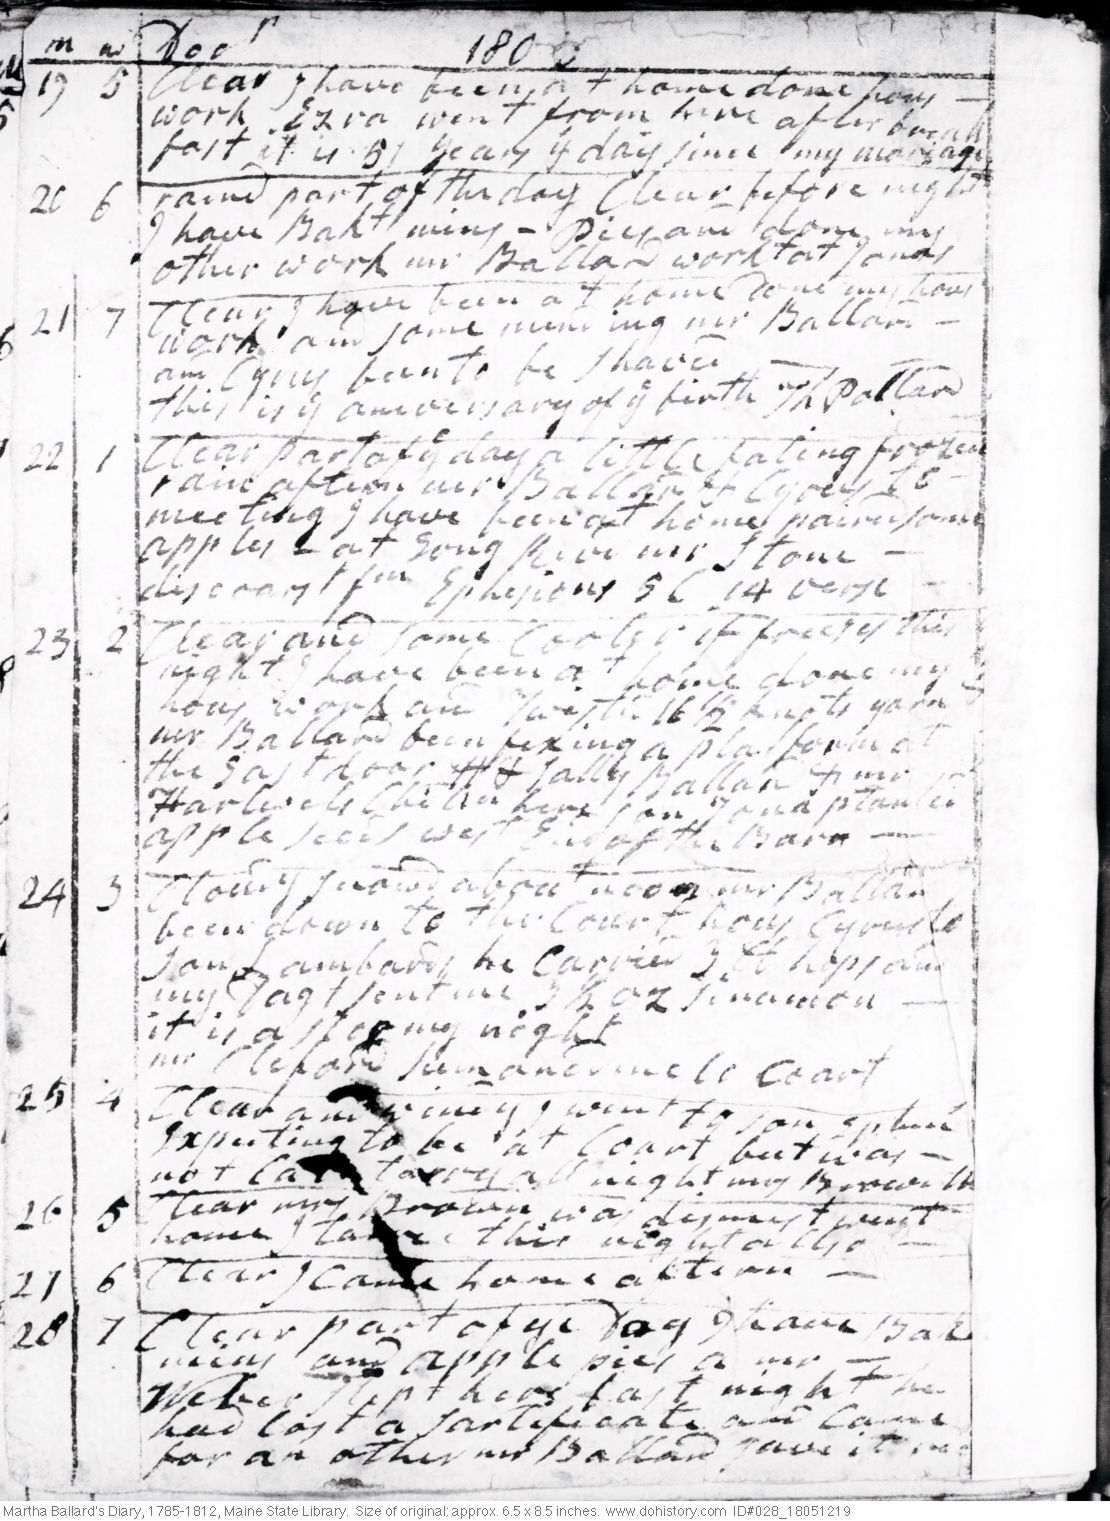 m w Decr 1805
19 5 Clear I have been at home done hous
work Ezra went from here after break
fast it is 51 years ys day since my mariage
20 6 raind part of the day Clear before night
I have Bakt mins Pies and done my
other work mr Ballard workt at Jonas
21 7 Clear I have been at home done my hous
work and some mending mr Ballard
and Cyrus been to be shaved
this is ye aniversary of ye birth of Ballard
22 1 Clear part of ye day a little fating frozen
rain aftern mr Ballard & Cyrus to
meeting I have been at home paird some
apples at mr Stone
discoarst fm Ephesions 5 C 14 verse
23 2 Clear and some Cooler it freezes this
night I have been at home done my
hous work and twisted 16 1/2 knots yarn
mr Ballard been fixing a platform at
the East door Sally Ballard & mr
Hartwels Children here son Jona planted
apple seeds west End of the Barn
24 3 Cloudy snowd about noon mr Ballard
been down to the Court hous Cyrus to
son Lambards he Carried 3 lb hops and
my Dagt sent me 3 1/2 oz sinamon
it is a stormy night
mr Cleford sumanced me to Coart
25 4 Clear and windy I went to son Ephm
Expecting to be at Coart but was
not Calld tarry all night my Brown
26 5 Clear mrs Brown was dismist went
home I tarried this night allso
27 6 Clear I came home aftern
28 7 Clear part of ye Day I have Bakt
mins and apple pies a mr
Weber slept here last night he
had lost a sartificate and Came
for an other mr Ballard gave it
Martha Ballard's Diary, 1785-1812, Maine State Library. Size of original: approx. 6.5 x 8.5 inches. www.dohistory.com ID#028_18051219